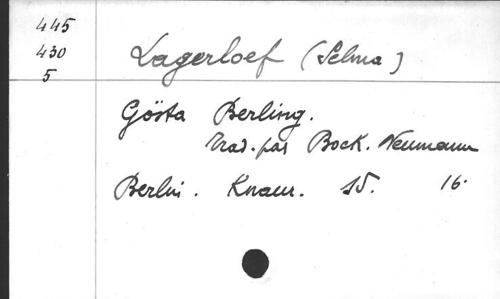 445
430
5
Lagerloef (Selma)
Gösta Berling.
Trad. par Bock. Neumann
Berlin. Knaur. SD. 16.